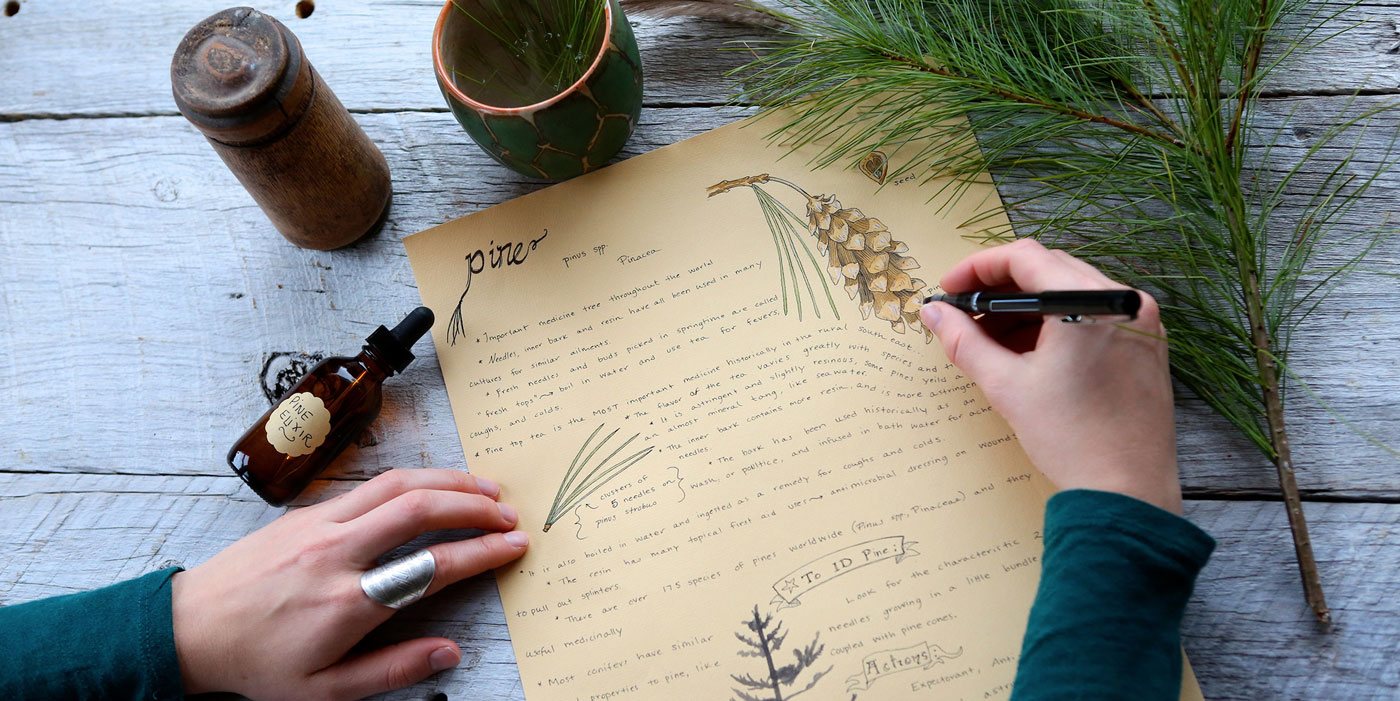 pine
pinus spp.
Pinacea
seed
* Important medicine tree throughout the world
* Needles, inner bark and resin have all been used in many
cultures for similar ailments.
* Fresh needles and buds picked in springtime are called
"fresh tops" → boil in water and use tea for fevers,
coughs, and colds.
Pine top tea is the MOST important medicine historically in the rural south east...
* The flavor of the tea varies greatly with species and
* It is astringent and slightly resinous, some pines yeild a
an almost mineral tang, like seawater
* The inner bark contains more resin, and is more astringent
needles.
* The bark has been used historically as an
wash, or poltice, and infused in bath water for ache
clusters of
5 needles on
pinus strobus
* It is also boiled in water and ingested as a remedy for coughs and colds.
* The resin has many topical first aid uses → antimicrobial dressing on wounds
to pull out splinters.
* There are over 175 species of pines worldwide (Pinus spp., Pinaceae) and they
useful medicinally
* Most conifers have similar
properties to pine, like
To ID Pine:
Look for the characteristic 2
needles growing in a little bundle
coupled with pine cones.
Actions
Expectorant, Ant
PINE
ELIXIR